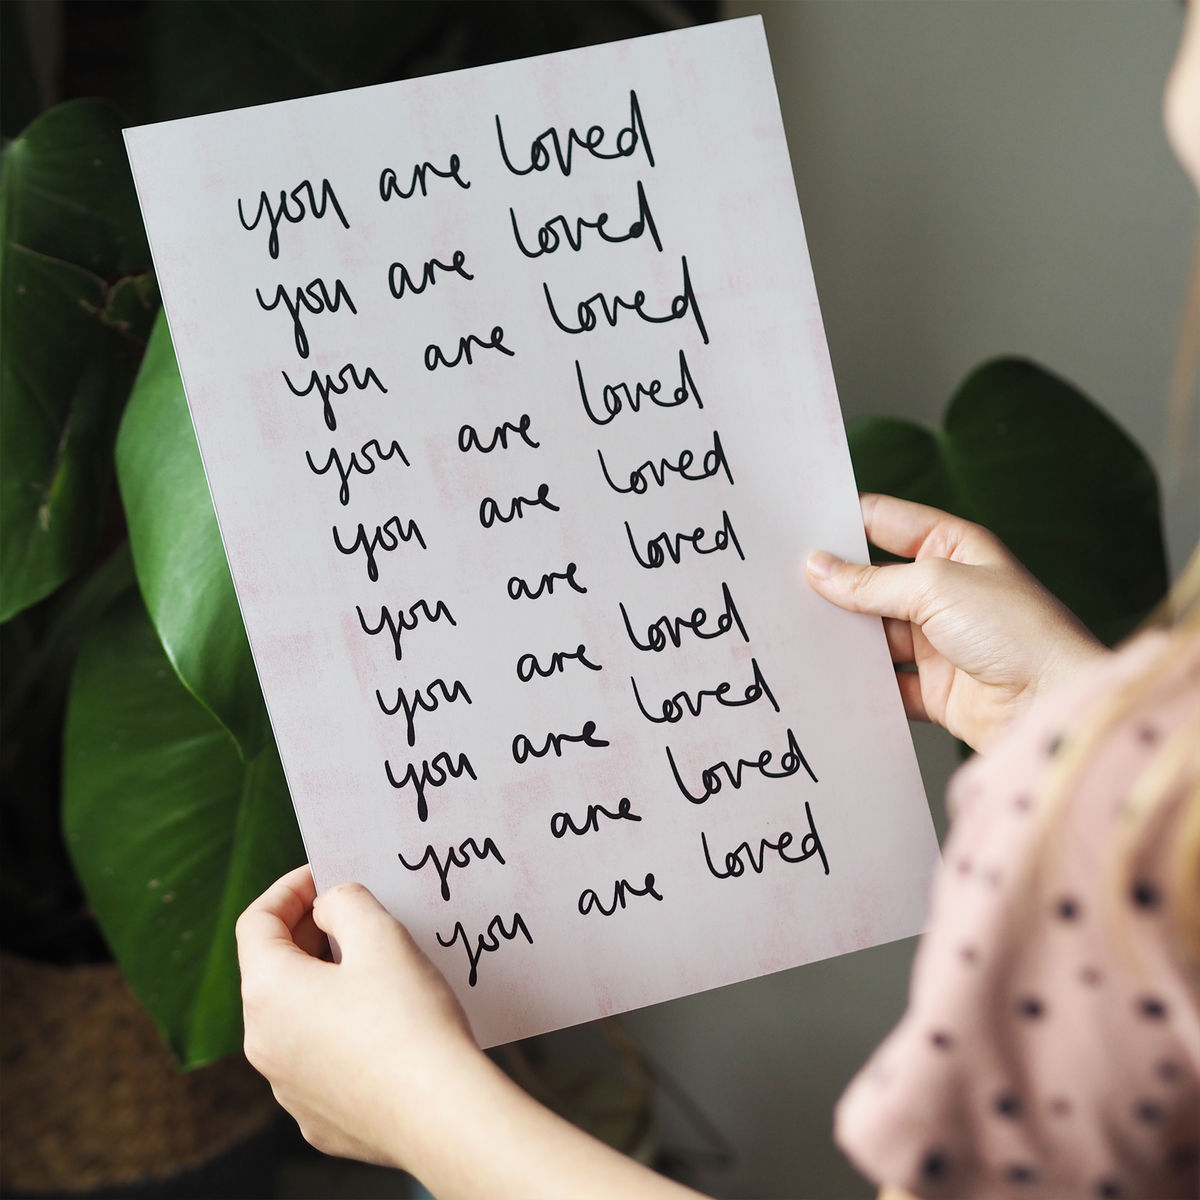 you are loved
you are loved
you are loved
you are loved
you are loved
you are loved
you are loved
you are loved
you are loved
you are loved